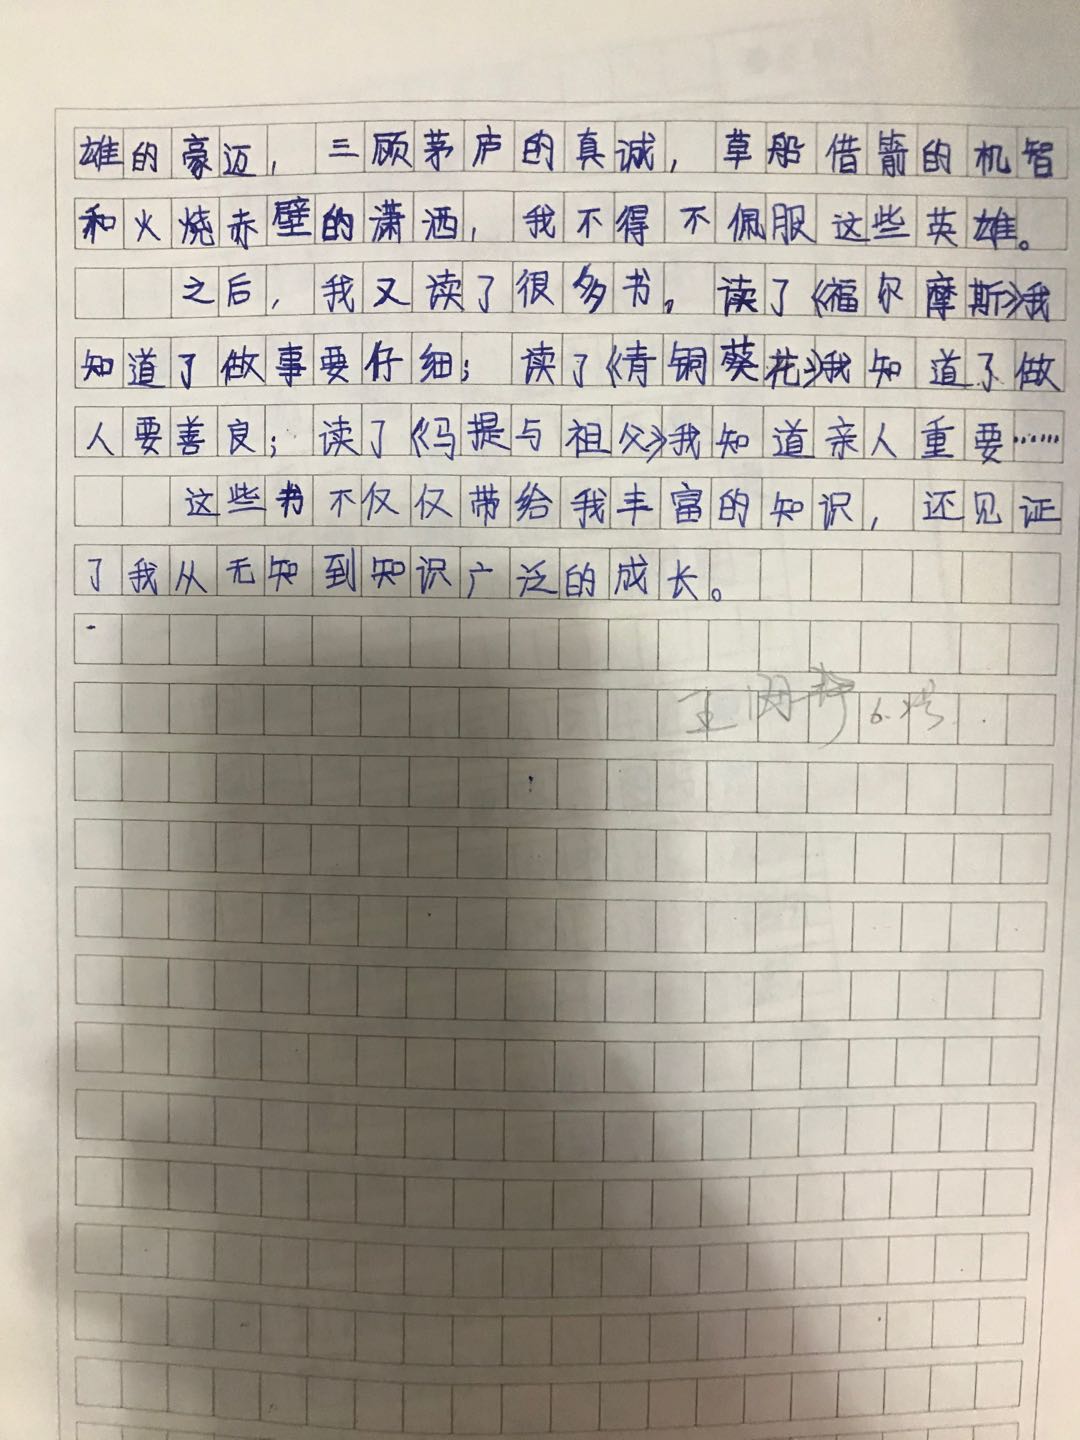 雄的豪迈，三顾茅庐的真诚，草船借箭的机智
和火烧赤壁的潇洒，我不得不佩服这些英雄。
之后，我又读了很多书。读了《福尔摩斯》我
知道了做事要仔细；读了《青铜葵花》我知道了做
人要善良；读了《马提与祖父》我知道亲人重要……
这些书不仅仅带给我丰富的知识，还见证
了我从无知到知识广泛的成长。
王